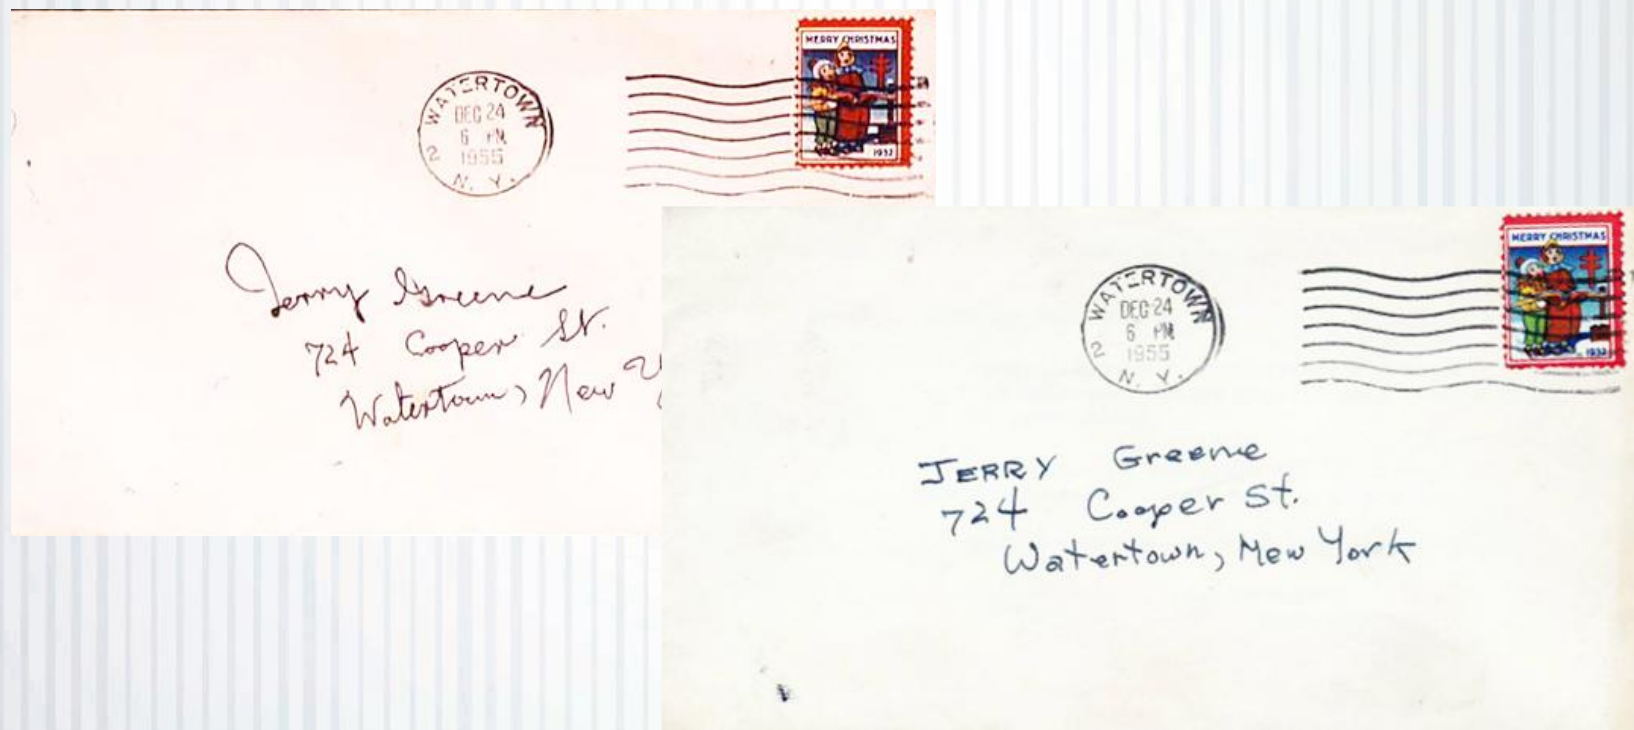 WATERTOWN
DEC 24
6 PM
2 1955
N. Y.
MERRY CHRISTMAS
1932
Jerry Greene
724 Cooper St.
Watertown, New
WATERTOWN
DEC 24
6 PM
2 1955
N. Y.
MERRY CHRISTMAS
1932
JERRY Greene
724 Cooper St.
Watertown, New York